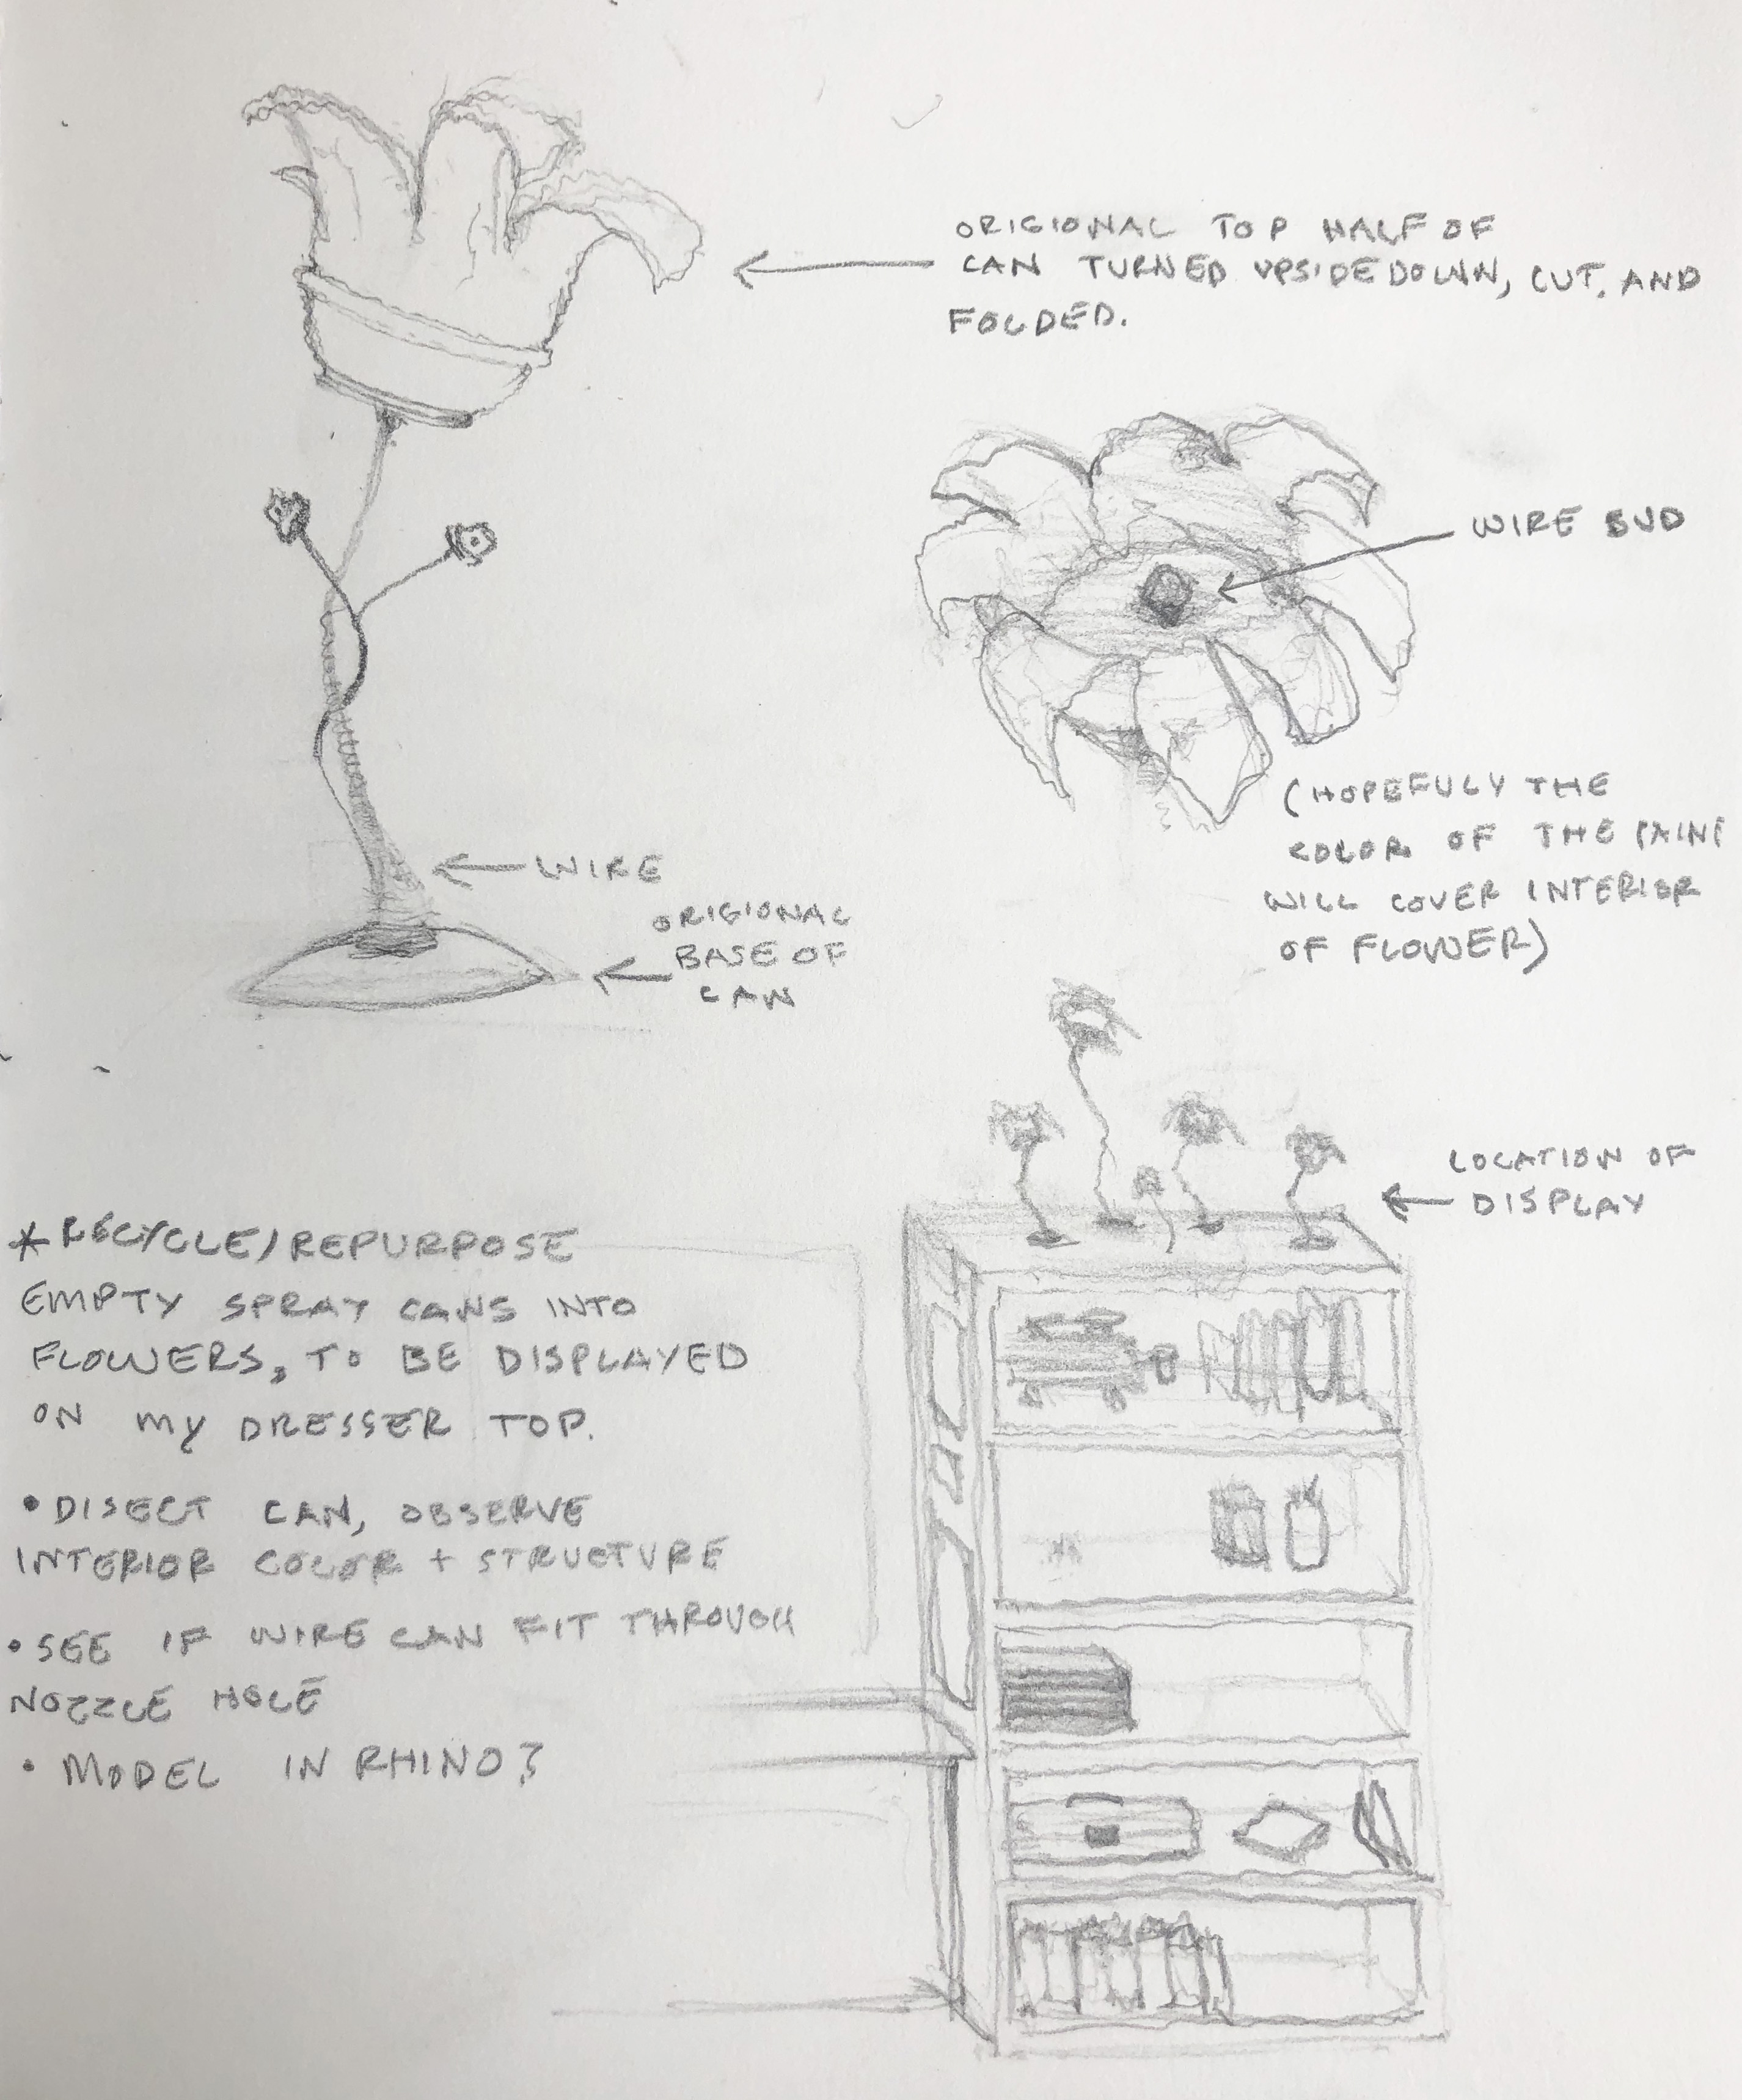 ORIGIONAL TOP HALF OF
CAN TURNED UPSIDEDOWN, CUT, AND
FOLDED.
WIRE BUD
(HOPEFULY THE
COLOR OF THE PAINT
WILL COVER INTERIOR
OF FLOWER)
WIRE
ORIGIONAL
BASE OF
CAN
LOCATION OF
DISPLAY
* RECYCLE/REPURPOSE
EMPTY SPRAY CANS INTO
FLOWERS, TO BE DISPLAYED
ON MY DRESSER TOP.
• DISECT CAN, OBSERVE
INTERIOR COLOR + STRUCTURE
• SEE IF WIRE CAN FIT THROUGH
NOZZLE HOLE
• MODEL IN RHINO?